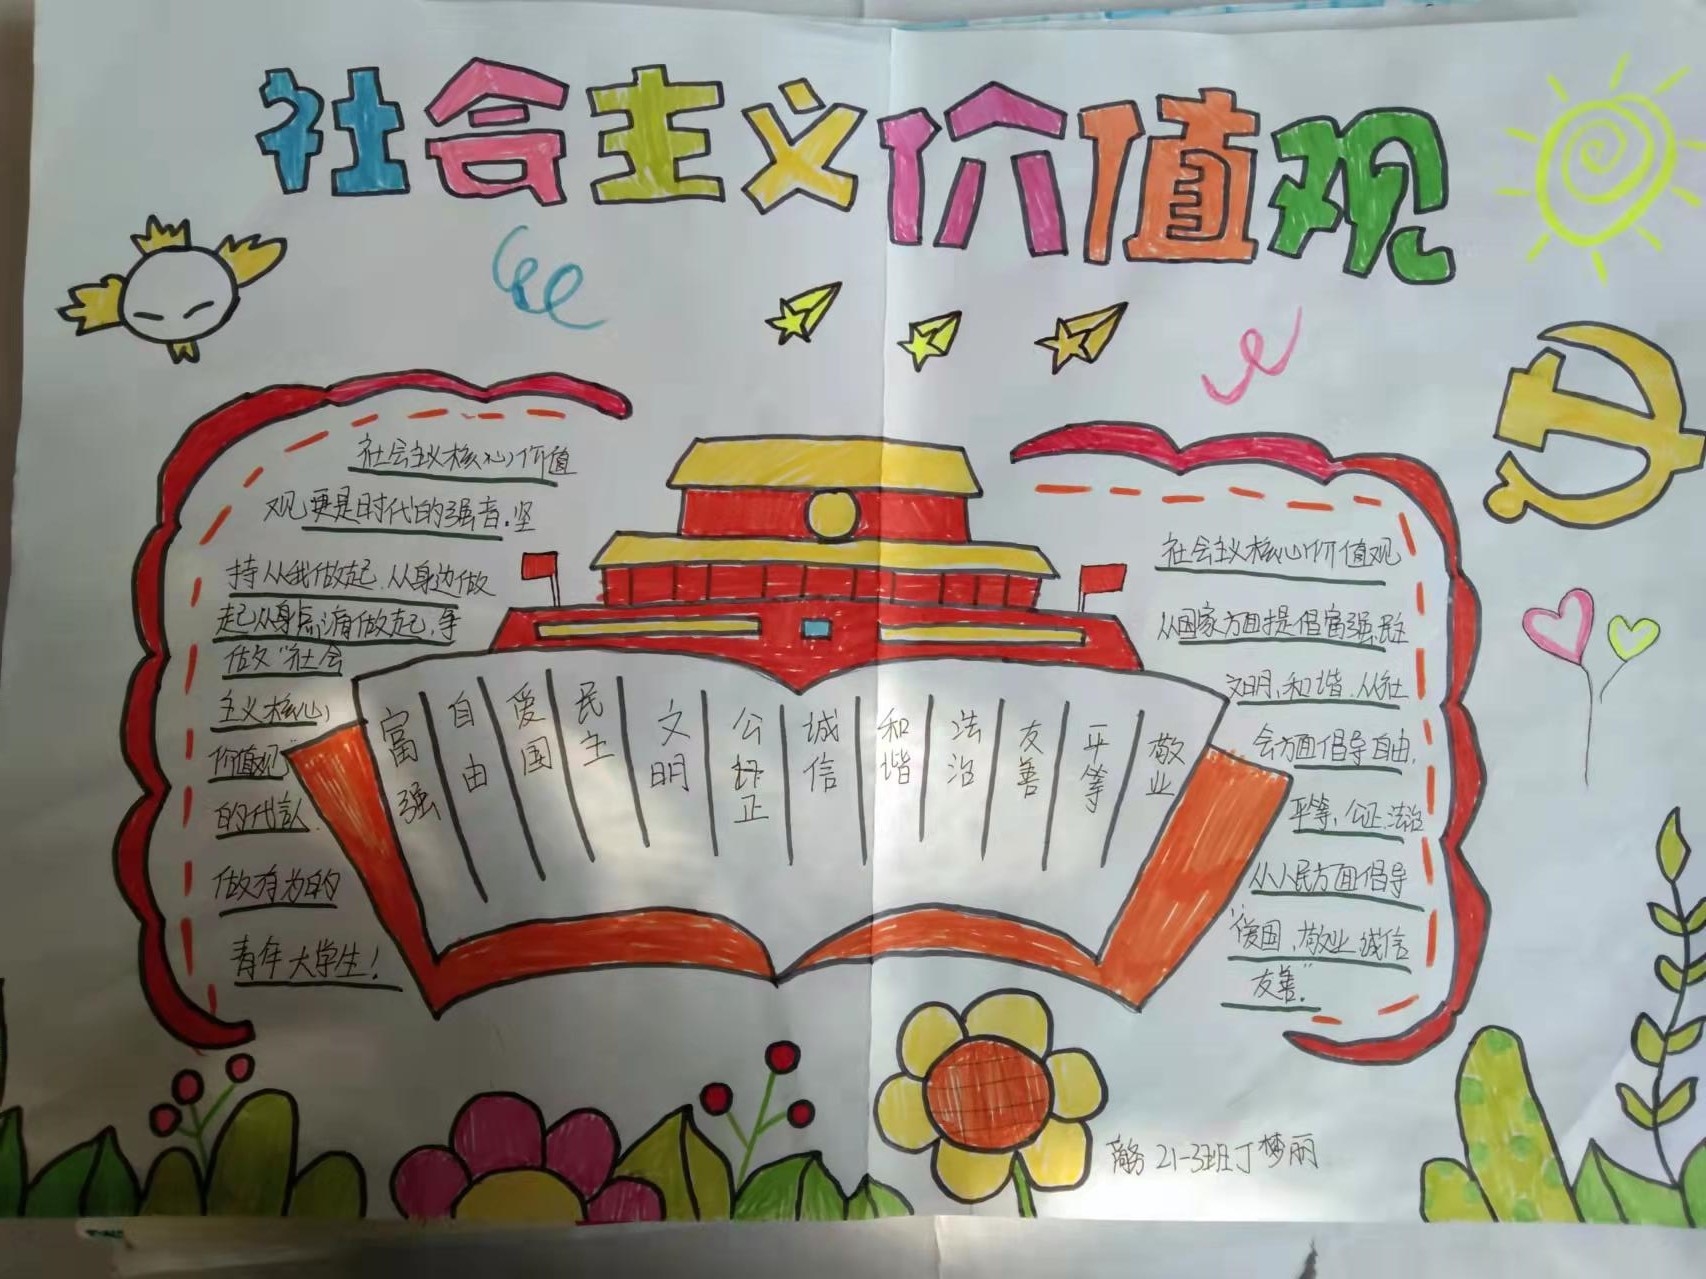 社会主义价值观
社会主义核心价值
观要是时代的强音.坚
持从我做起.从身边做
起从身点滴做起,争
做文"社会
主义核心
价值观"
的代言人.
做有为的
青年大学生!
富强
自由
爱国
民主
文明
公正
诚信
和谐
法治
友善
平等
敬业
社会主义核心价值观
从国家方面提倡富强.民主
文明、和谐.从社
会方面倡导自由.
平等,公正.法治
从人民方面倡导
"爱国、敬业.诚信
友善."
商务21-3班丁梦丽